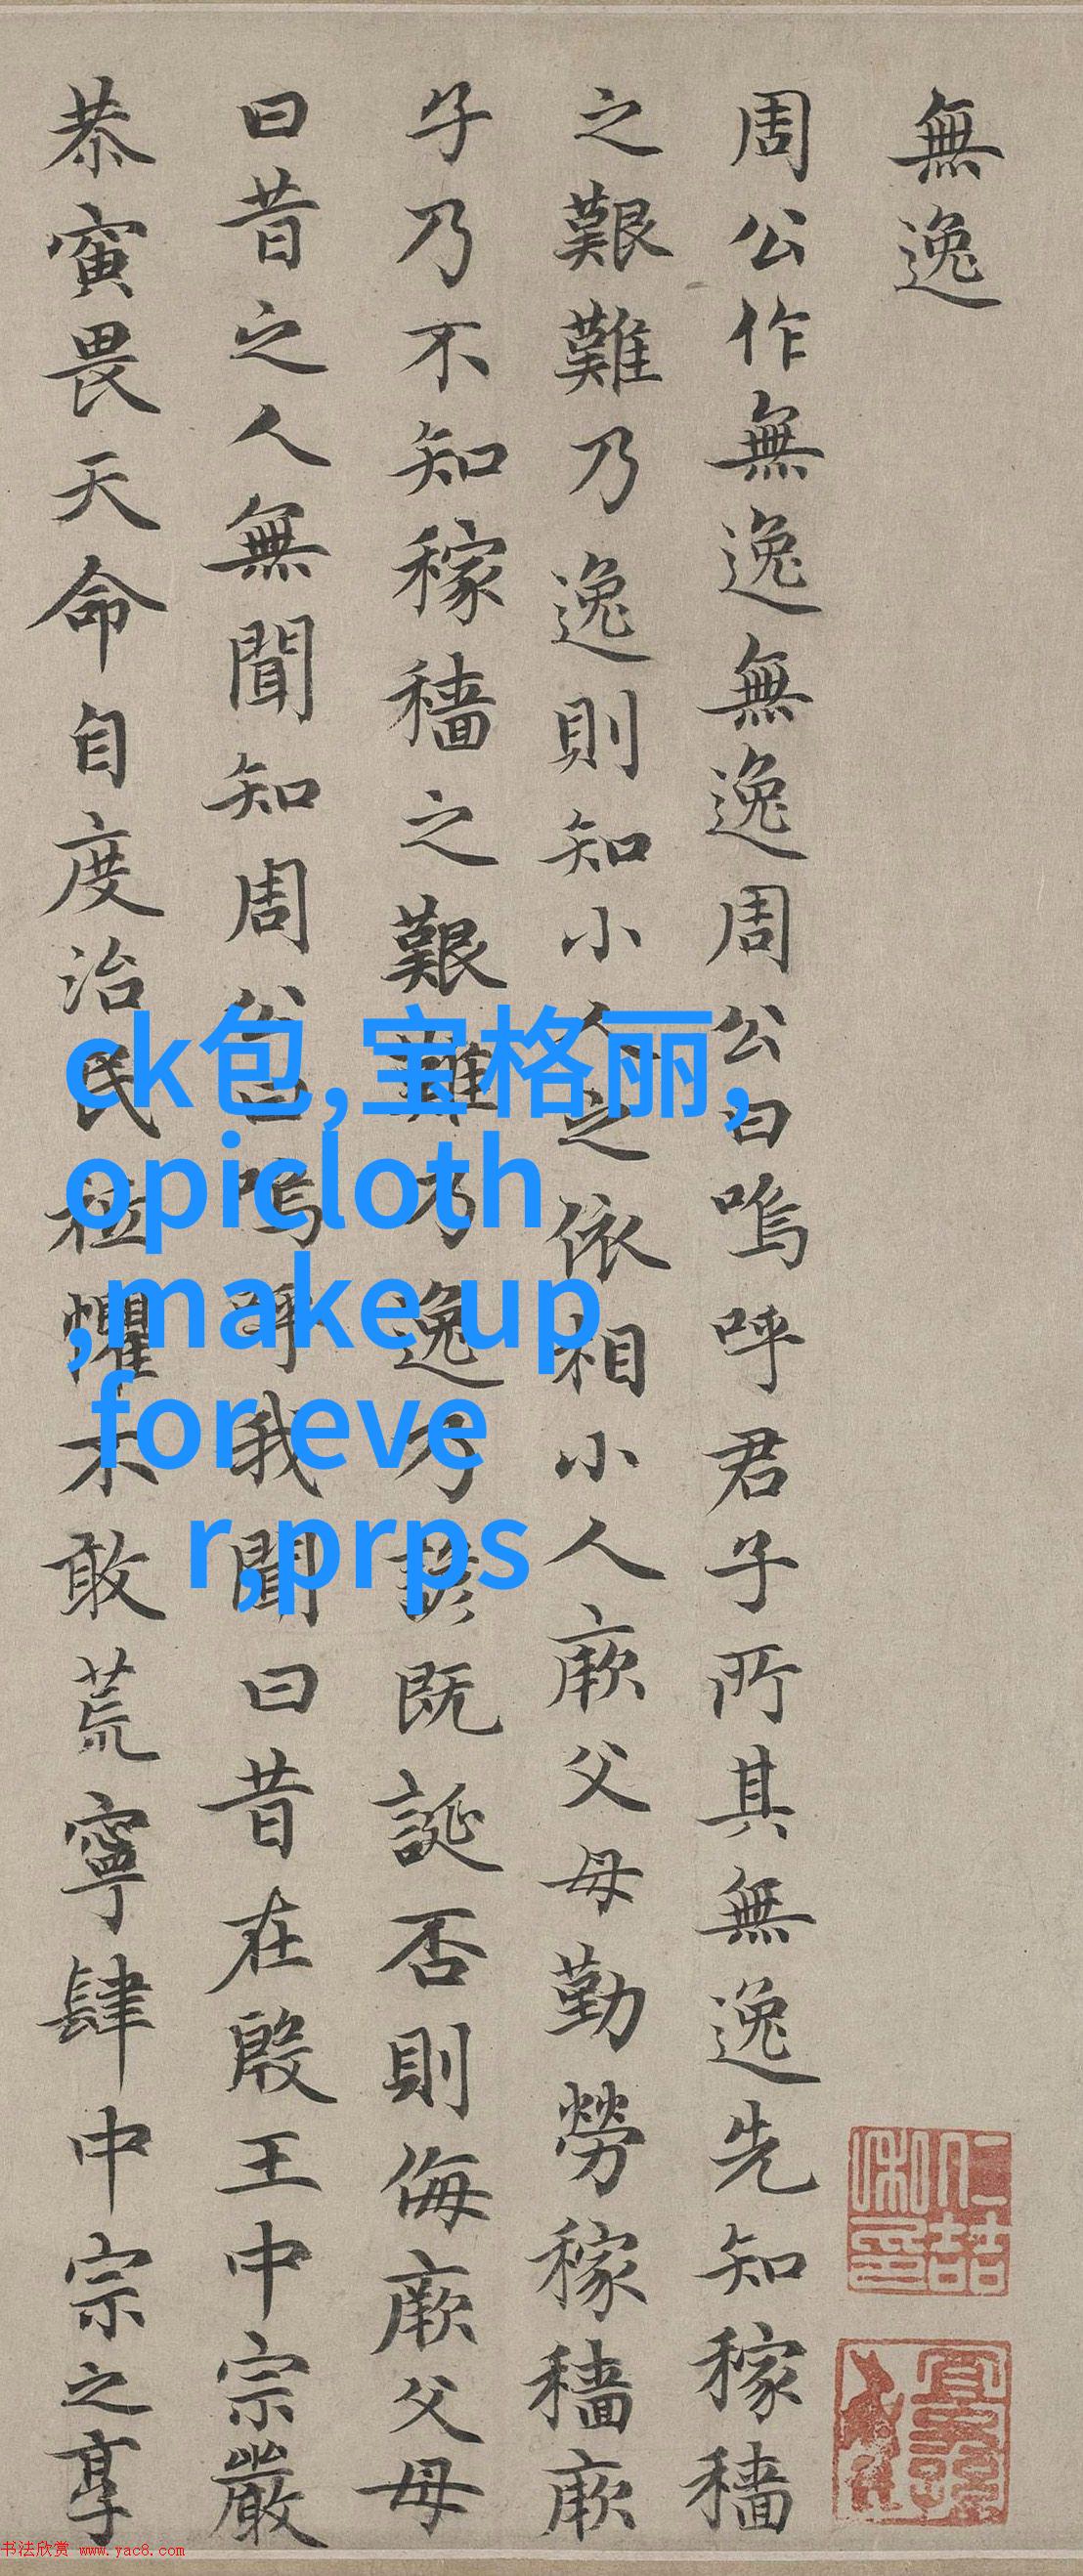 無逸
周公作無逸無逸周公曰嗚呼君子所其無逸先知稼穡
之艱難乃逸則知小人之依相小人厥父母勤勞稼穡厥
子乃不知稼穡之艱難乃逸乃諺既誕否則侮厥父母
曰昔之人無聞知周公曰嗚呼我聞曰昔在殷王中宗嚴
恭寅畏天命自度治民祗懼不敢荒寧肆中宗之享
ck包,宝格丽,
opicloth
,make up
for eve
r,prps
书法欣赏 www.yac8.com